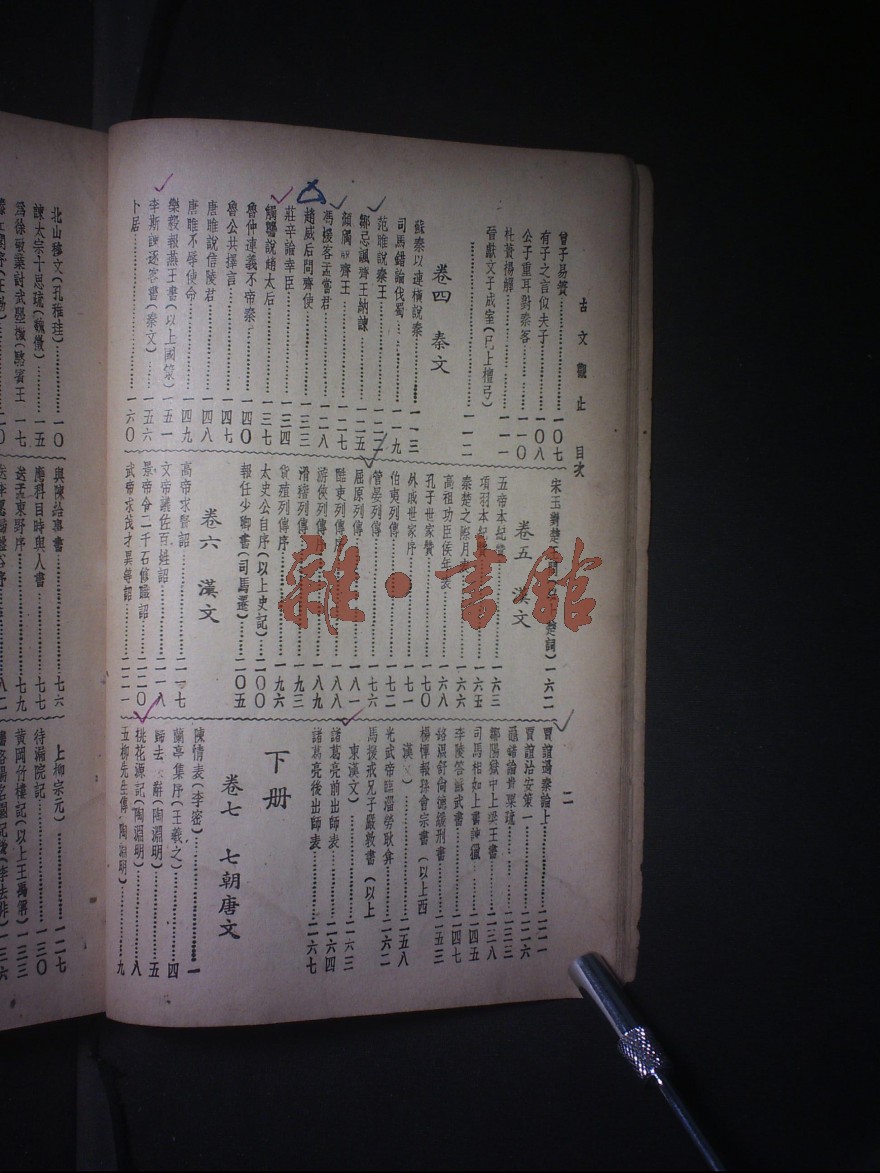 古文觀止 目次
二
曾子易簀………一〇七
有子之言似夫子………一〇八
公子重耳對秦客………一一〇
杜蕢揚觶………一一一
晉獻文子成室(已上檀弓)
………一一二
卷四 秦文
蘇秦以連橫說秦………一一三
司馬錯論伐蜀………一一九
范雎說秦王………一二二
鄒忌諷齊王納諫………一二五
顏斶 齊王………一二七
馮煖客孟嘗君………一二八
趙威后問齊使………一三三
莊辛論幸臣………一三四
觸讋說趙太后………一三七
魯仲連義不帝秦………一四〇
魯公共擇言………一四七
唐雎說信陵君………一四八
唐雎不辱使命………一四九
樂毅報燕王書(以上國策)………一五一
李斯諫逐客書(秦文)………一五六
卜居………一六〇
宋玉對楚王問 楚詞)一六二
卷五 漢文
五帝本紀贊………一六三
項羽本紀贊………一六五
秦楚之際月………一六六
高祖功臣侯年表………一六八
孔子世家贊………一七〇
外戚世家序………一七一
伯夷列傳………一七二
管晏列傳………一七六
屈原列傳………一八一
酷吏列傳序………一八八
游俠列傳序………一八九
滑稽列傳………一九三
貨殖列傳序………一九六
太史公自序(以上史記)………二〇〇
報任少卿書(司馬遷)………二〇五
卷六 漢文
高帝求賢詔………二一七
文帝議佐百姓詔………二一八
景帝令二千石修職詔………二二〇
武帝求茂才異等詔………二二一
賈誼過秦論上………二二一
賈誼治安策一………二二六
鼂錯論貴粟疏………二三三
鄒陽獄中上梁王書………二三八
司馬相如上書諫獵………二四五
李陵答蘇武書………二四七
路溫舒尚德緩刑書………二五三
楊惲報孫會宗書(以上西
漢文)………二五八
光武帝臨淄勞耿弇………一六二
馬援戒兄子嚴敦書(以上
東漢文)………一六三
諸葛亮前出師表………一六四
諸葛亮後出師表………一六七
下册
卷七 七朝唐文
陳情表(李密)………一
蘭亭集序(王羲之)………四
歸去 辭(陶淵明)………五
桃花源記(陶淵明)………八
五柳先生傳(陶淵明)………九
北山移文(孔稚珪)………一〇
諫太宗十思疏(魏徵)………一五
爲徐敬業討武曌檄(駱賓王 一七
與陳給事書………七六
應科目時與人書………七七
送孟東野序………七九
上柳宗元)………一二七
待漏院記………一三〇
黄岡竹樓記(以上王禹偁)………一三三
雜·書館